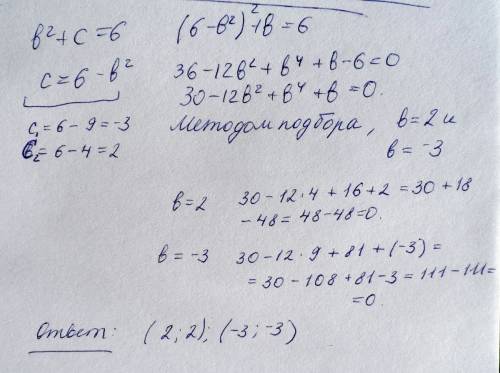 в²+c=6
(6-в²)²+в=6
c=6-в²
36-12в²+в⁴+в-6=0
30-12в²+в⁴+в=0.
c₁=6-9=-3
Методом подбора, в=2 и
c₂=6-4=2
в=-3
в=2 30-12·4+16+2=30+18
-48=48-48=0.
в=-3 30-12·9+81+(-3)=
=30-108+81-3=111-111=
=0.
Ответ: (2;2); (-3;-3)